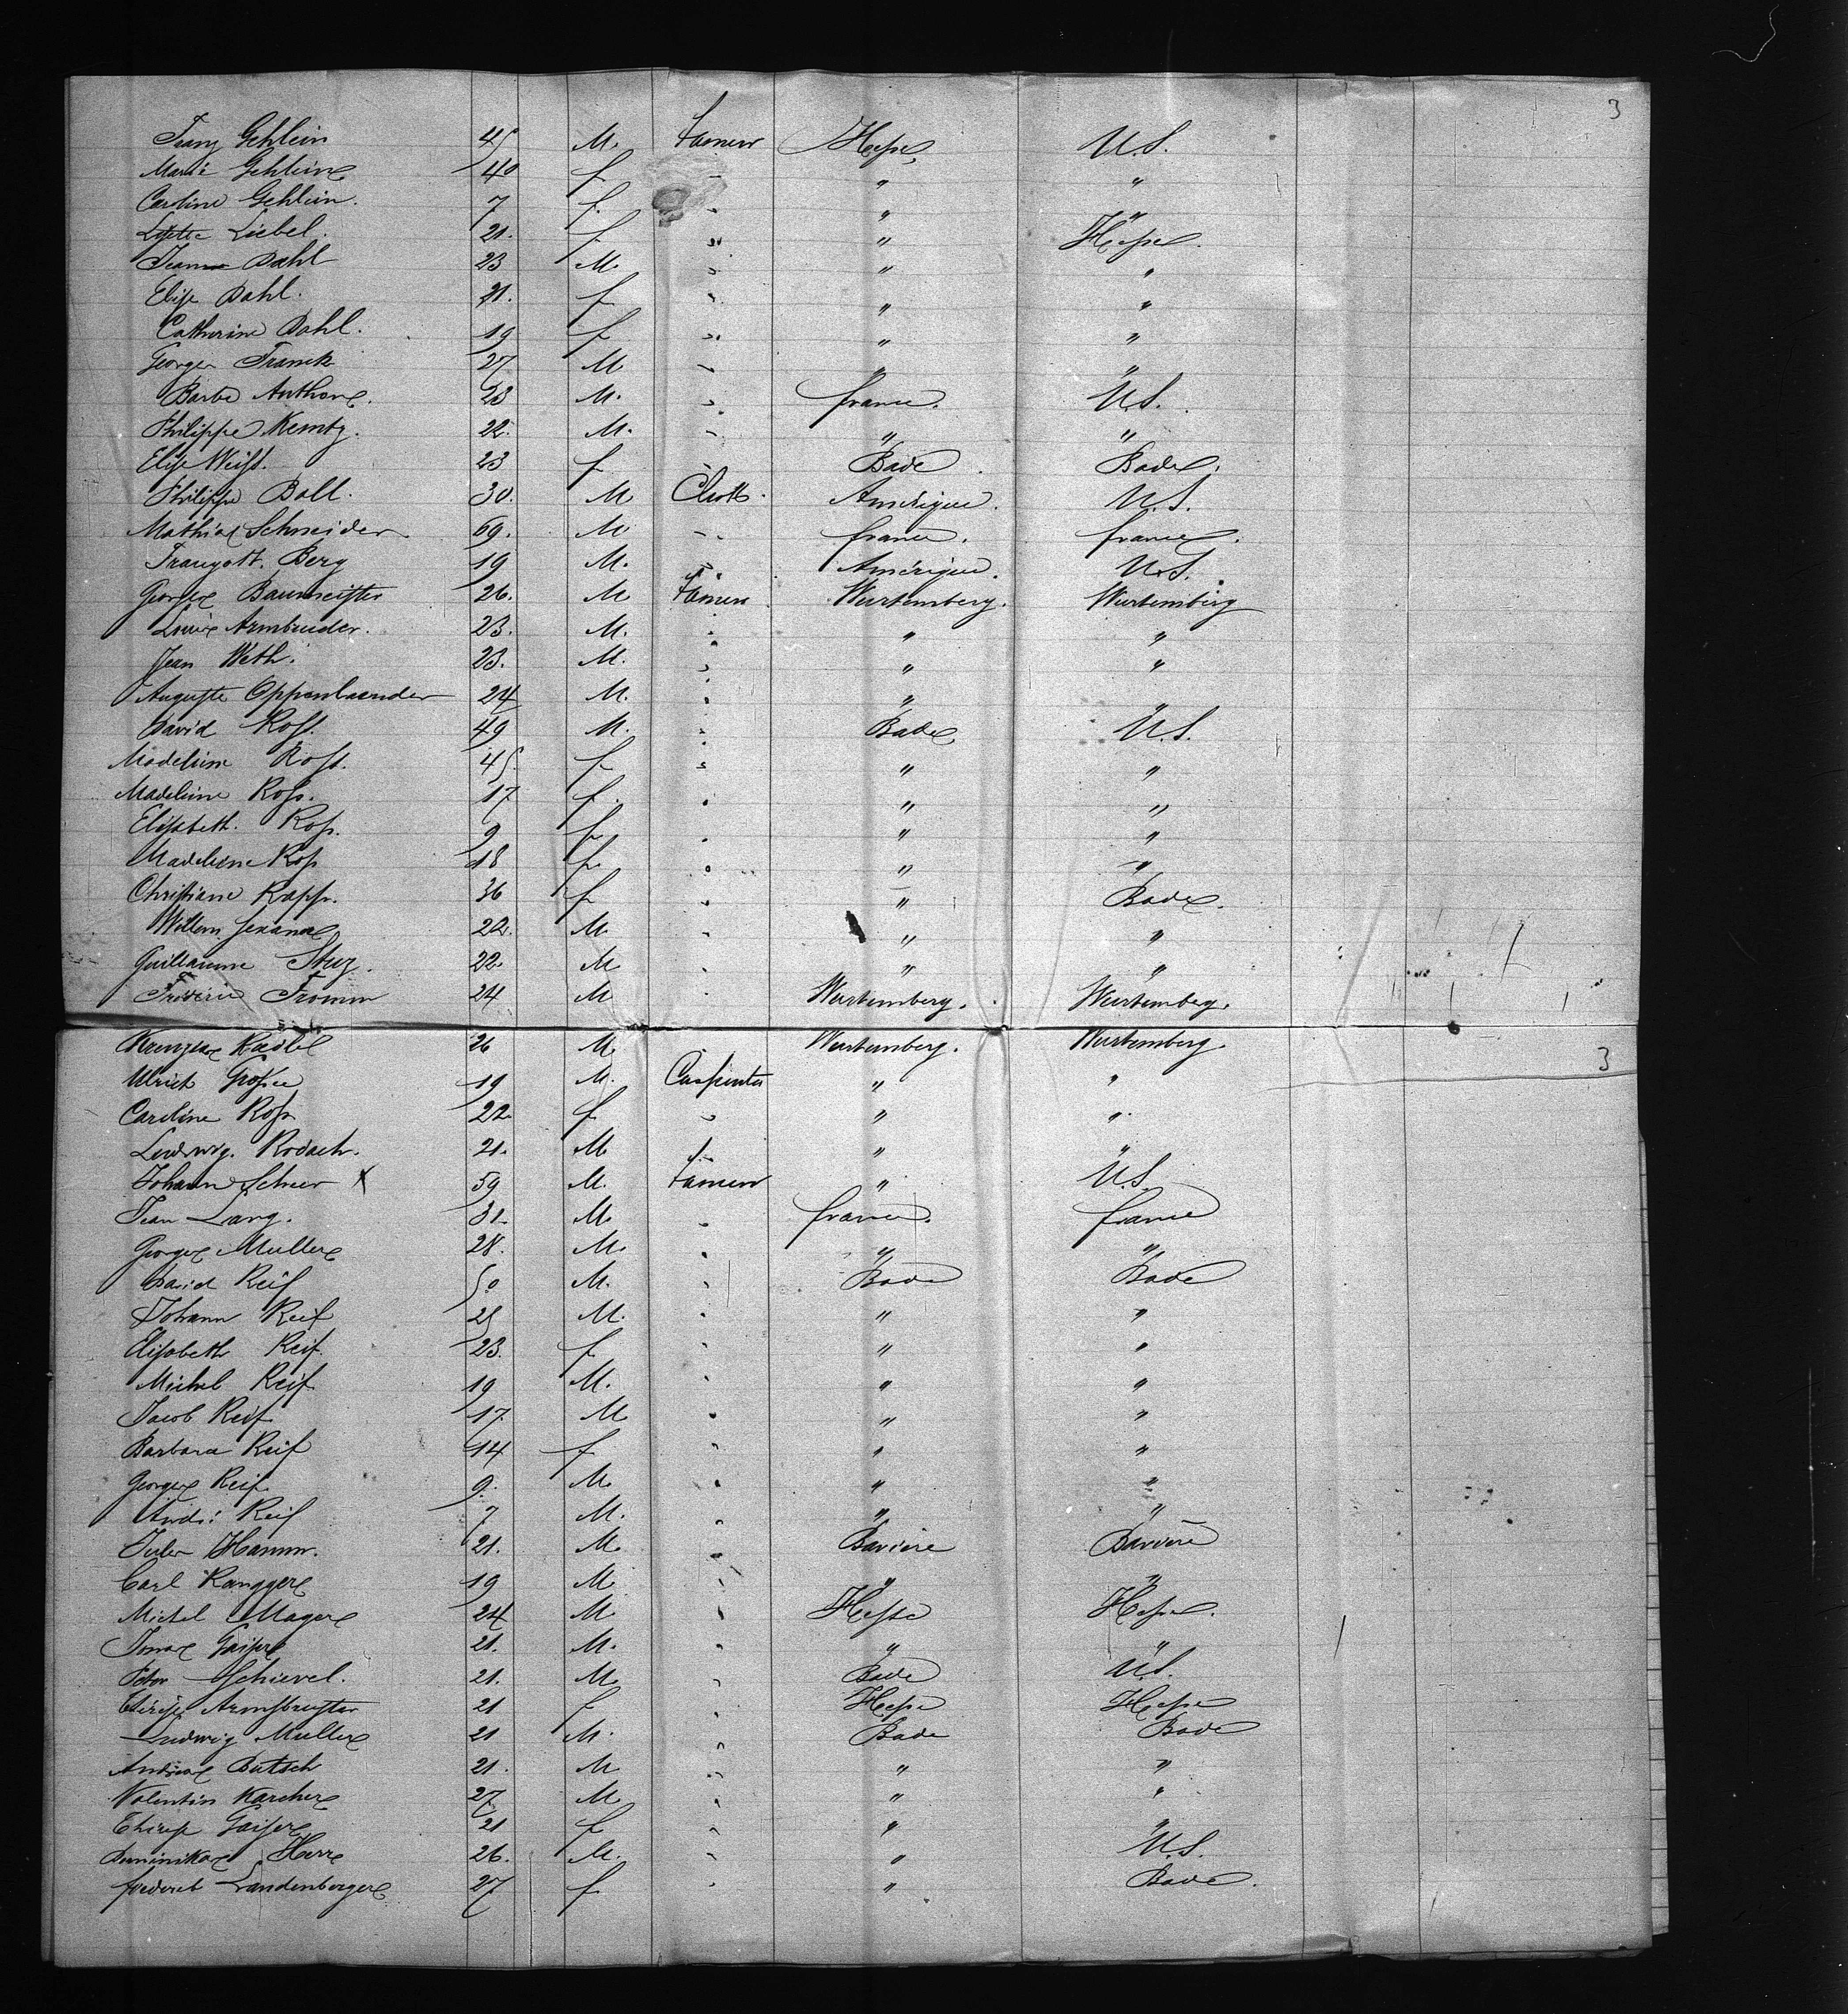 3
Franz Gehlein 45 M. Farmer Hesse U.S.
Marie Gehlein 40 f - " "
Caroline Gehlein. 7 f. " " "
Lisette Liebel. 21. f " " Hesse.
Jean Dahl 23 M. " " "
Elise Dahl. 21. f " " "
Catherine Dahl. 19 f " " "
George Franck 27 M - " "
Barbe Anthon. 23 M. " france. U.S.
Philippe Kemtz. 22. M. - " "
Elise Weiss. 23 f - Bade. Bade.
Philippe Ball. 30. M Clerk. Amérique. U.S.
Mathias Schneider. 69. M - france. france.
Traugott. Berg 19 M. " Amérique. U.S.
George Baumeister 26. M Farmer Wurtemberg. Wurtemberg
Louis Armbruder. 23. M. " " "
Jean Weth. 23. M. " " "
Auguste Oppenlaender 24 M. " " "
David Ross. 49 M. " Bade U.S.
Madeleine Ross. 45. f " " "
Madeleine Ross. 17 f. " " "
Elisabeth. Ross. 9 f. " " "
Madeleine Ross 18 f. " " "
Christiane Rapp. 36 f " " Bade.
Willem 22. M. " " "
Guillaume Stuz. 22 M " " "
Frederic Fromm 24 M " Wurtemberg. Wurtemberg.
Kaibel 26 M. Wurtemberg. Wurtemberg.
3
Ulrich 19 M. Carpenter " "
Caroline Ross 22 f " " "
Ludwig. Rodach. 21. M " " "
Johann Scheer X 59 M. Farmer " U.S.
Jean Lang. 31 M. " france. france
George Muller 28. M. " " "
David Reif 50 M. " Bade Bade
Johann Reif 25 M. " " "
Elisabeth Reif. 23. f " " "
Michel Reif 19 M. " " "
Jacob Reif 17. M " " "
Barbara Reif 14 f " " "
George Reif 9. M " " "
André Reif 7 M. " " "
Jules Hamm. 21. M. " Baviere Baviere
Carl Rangger 19 M. " " "
Michel Mager 24 M. " Hesse Hesse.
Gaiser 21. M. " " "
Peter Schievel. 21. M. " Bade U.S.
Therese Armbruster 21 f " Hesse Hesse
Ludwig Muller 21 M. " Bade Bade
Andreas Butsch 21. M " " "
Valentin Karcher 27 M. " " "
Therese Gaiser 21 f " " "
Dominika Herr 26. M. " " U.S.
frederet Landenberger 27 f " " Bade.